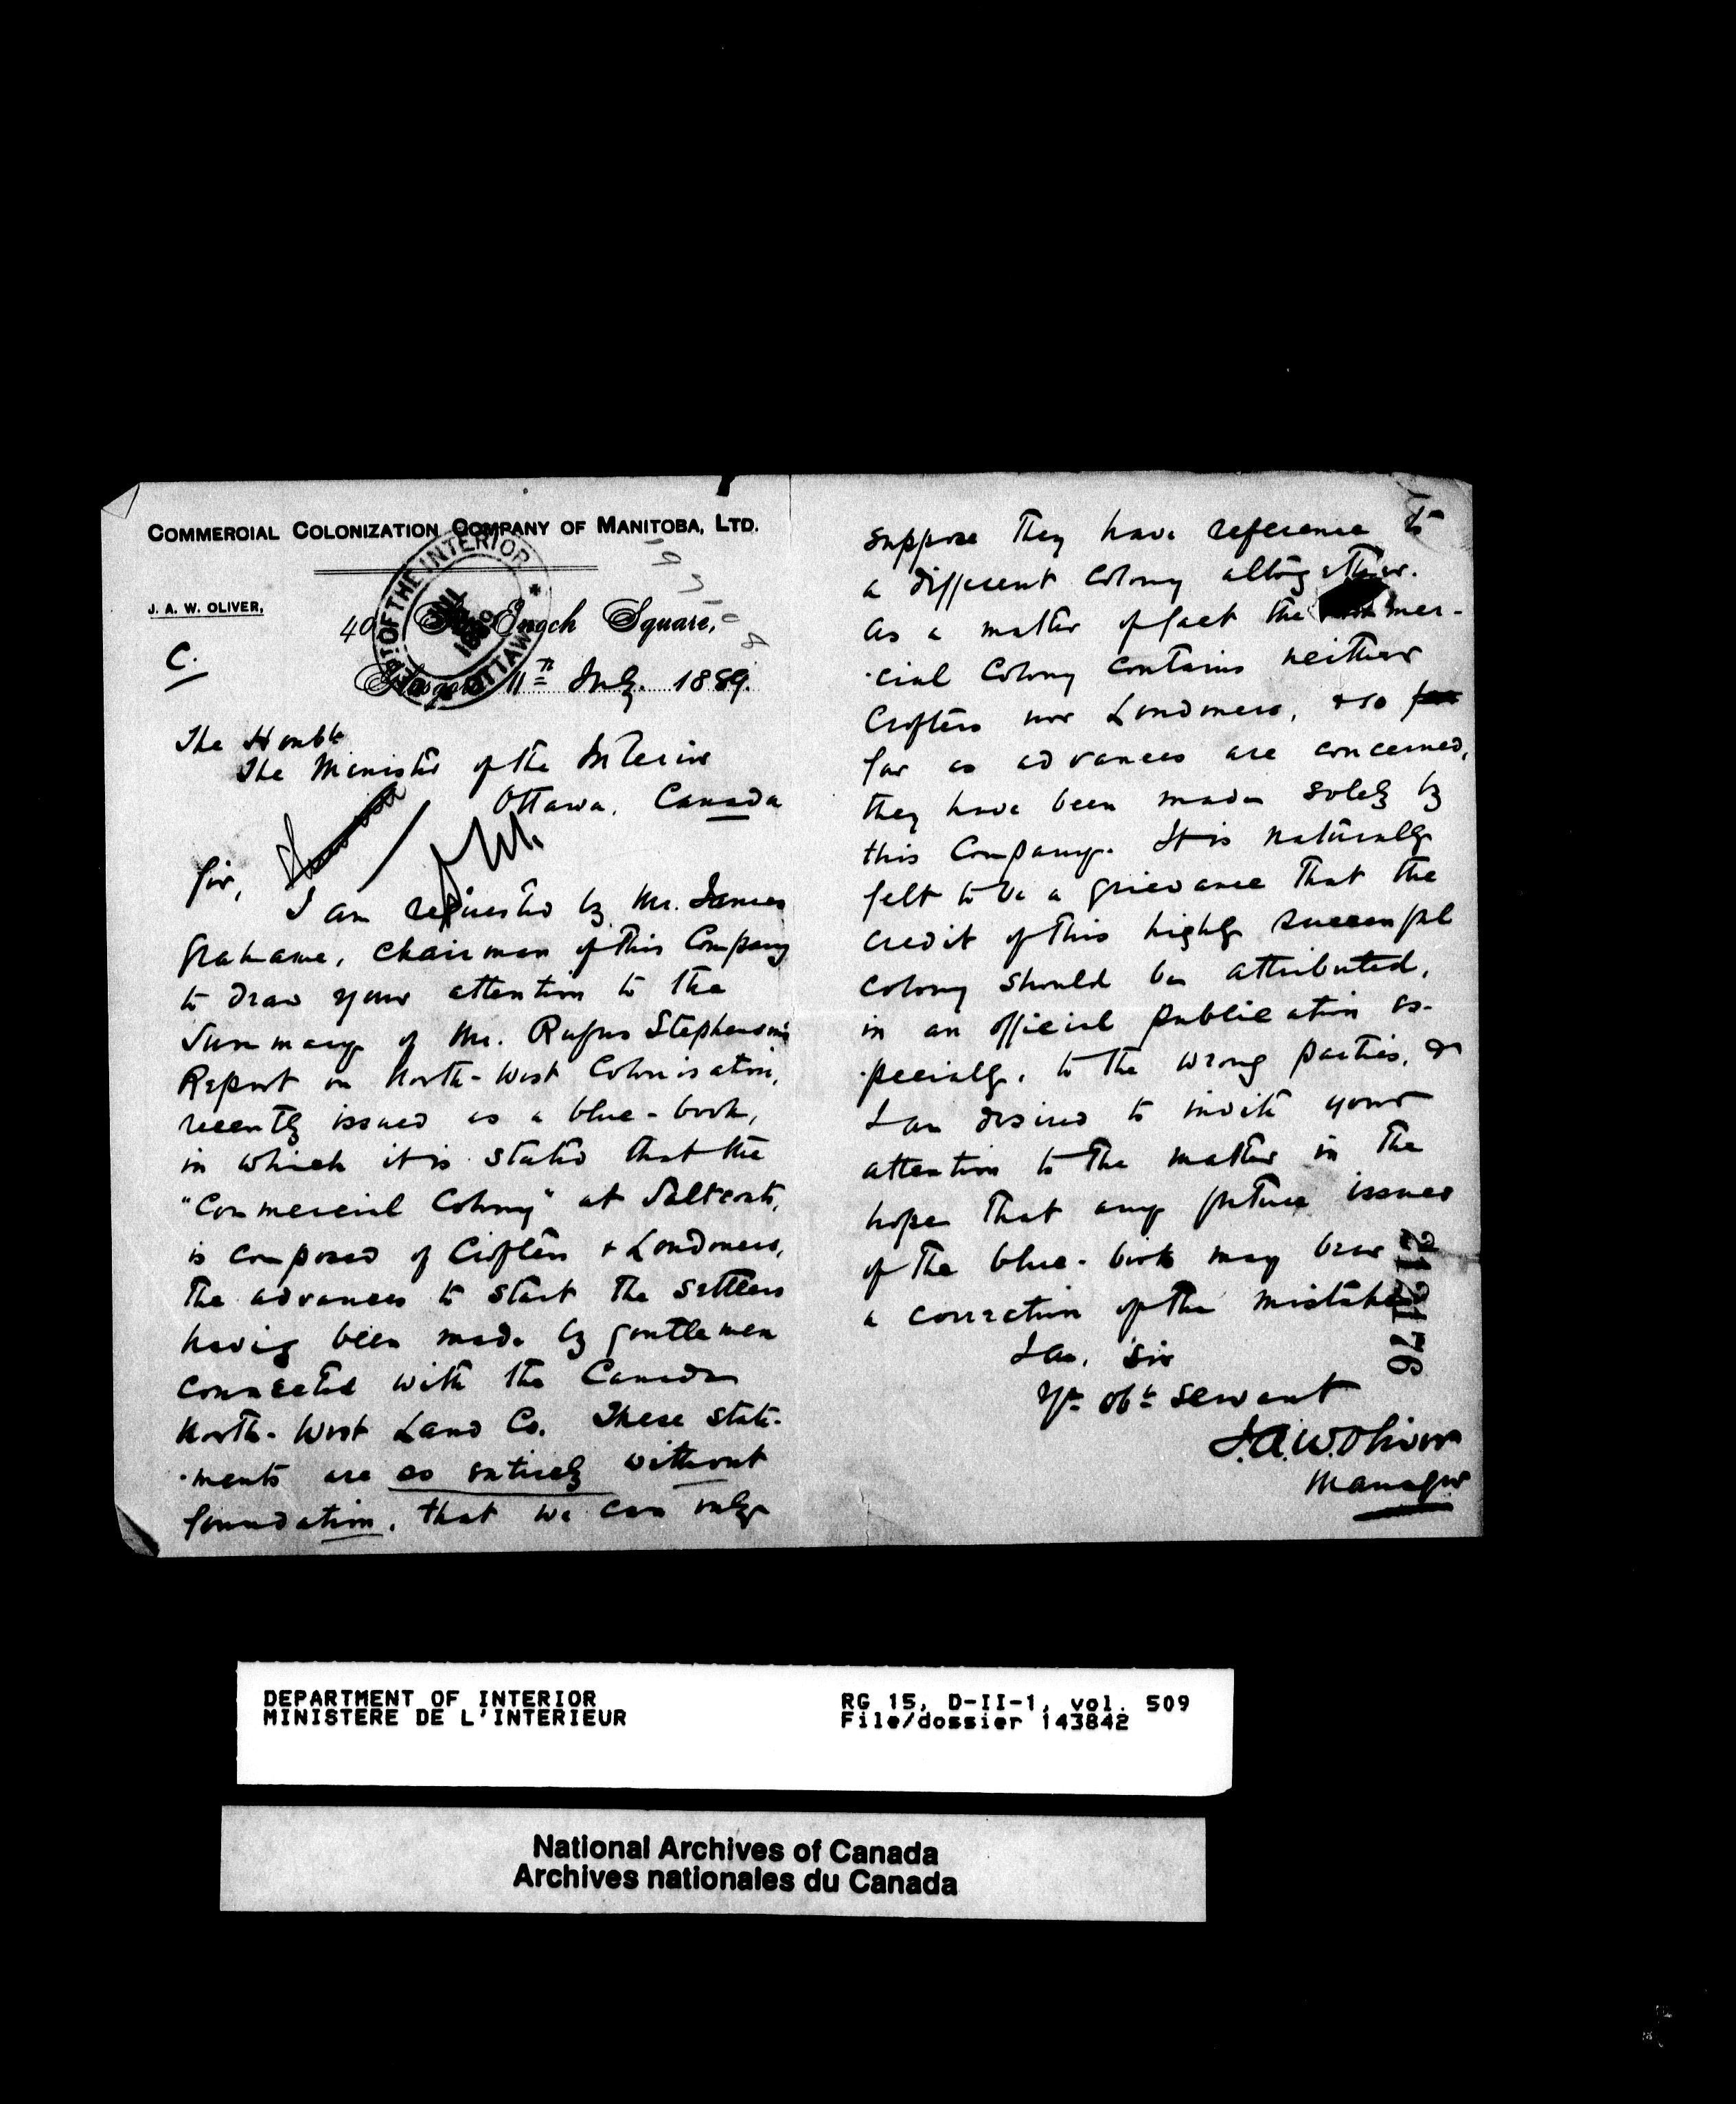 COMMERCIAL COLONIZATION COMPANY OF MANITOBA, LTD.
J. A. W. OLIVER,
40 St. Enoch Square,
C.
Glasgow 11th July. 1889.
DEPT. OF THE INTERIOR
OTTAWA
The Honble
The Minister of the Interior
Ottawa, Canada
Sir,
I am requested by Mr. James
Grahame, Chairman of this Company
to draw your attention to the
Summary of Mr. Rufus Stephenson's
Report on North-West Colonisation,
recently issued as a blue-book,
in which it is stated that the
"Commercial Colony" at Saltcoats,
is composed of Crofters & Londoners,
the advances to start the settlers
having been made by gentlemen
connected with the Canada
North-West Land Co. These state-
-ments are so entirely without
foundation, that we can only
suppose they have reference to
a different colony altogether.
As a matter of fact the mer-
-cial Colony contains neither
Crofters nor Londoners, & so far
far as advances are concerned,
they have been made solely by
this Company. It is naturally
felt to be a grievance that the
credit of this highly successful
colony should be attributed,
in an official publication es-
-pecially, to the wrong parties, &
I am desired to invite your
attention to the matter in the
hope that any future issues
of the blue-book may bear
a correction of the mistake.
I am, Sir
Yr. obt. servant
J.A.W. Oliver
Manager
212176
DEPARTMENT OF INTERIOR
MINISTERE DE L'INTERIEUR
RG 15, D-II-1, vol. 509
File/dossier 143842
National Archives of Canada
Archives nationales du Canada